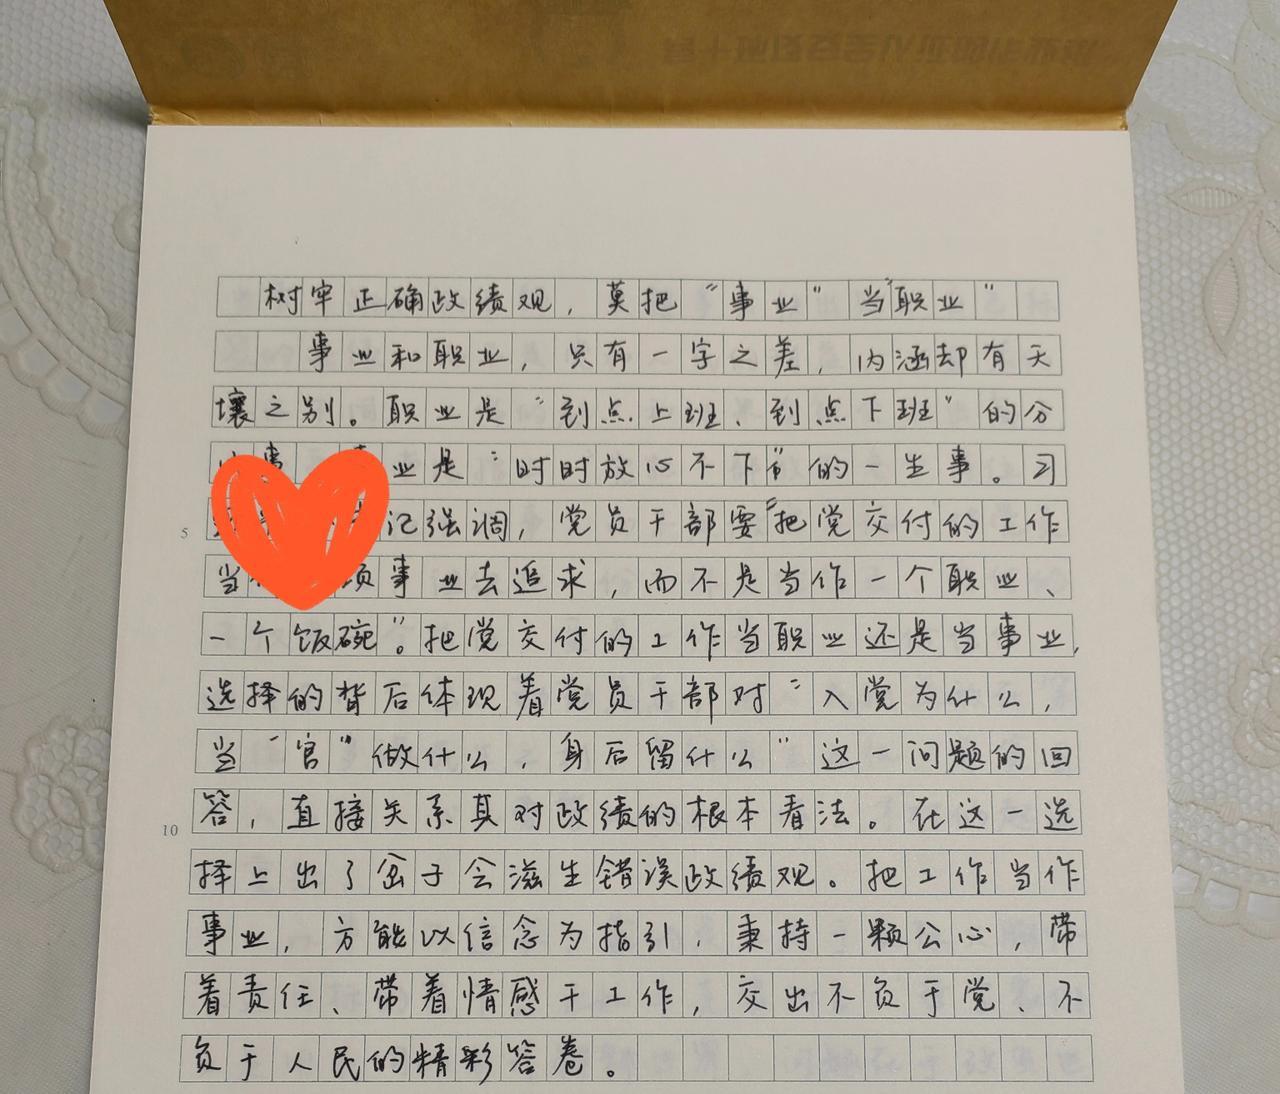 树牢正确政绩观，莫把“事业”当“职业”
事业和职业，只有一字之差，内涵却有天
壤之别。职业是“到点上班、到点下班”的分
事 业是“时时放心不下”的一生事。习
记强调，党员干部要“把党交付的工作
当 项事业去追求，而不是当作一个职业、
一个饭碗”。把党交付的工作当职业还是当事业，
选择的背后体现着党员干部对“入党为什么，
当“官”做什么，身后留什么”这一问题的回
答，直接关系其对政绩的根本看法。在这一选
择上出了岔子会滋生错误政绩观。把工作当作
事业，方能以信念为指引，秉持一颗公心，带
着责任、带着情感干工作，交出不负于党、不
负于人民的精彩答卷。
5
10